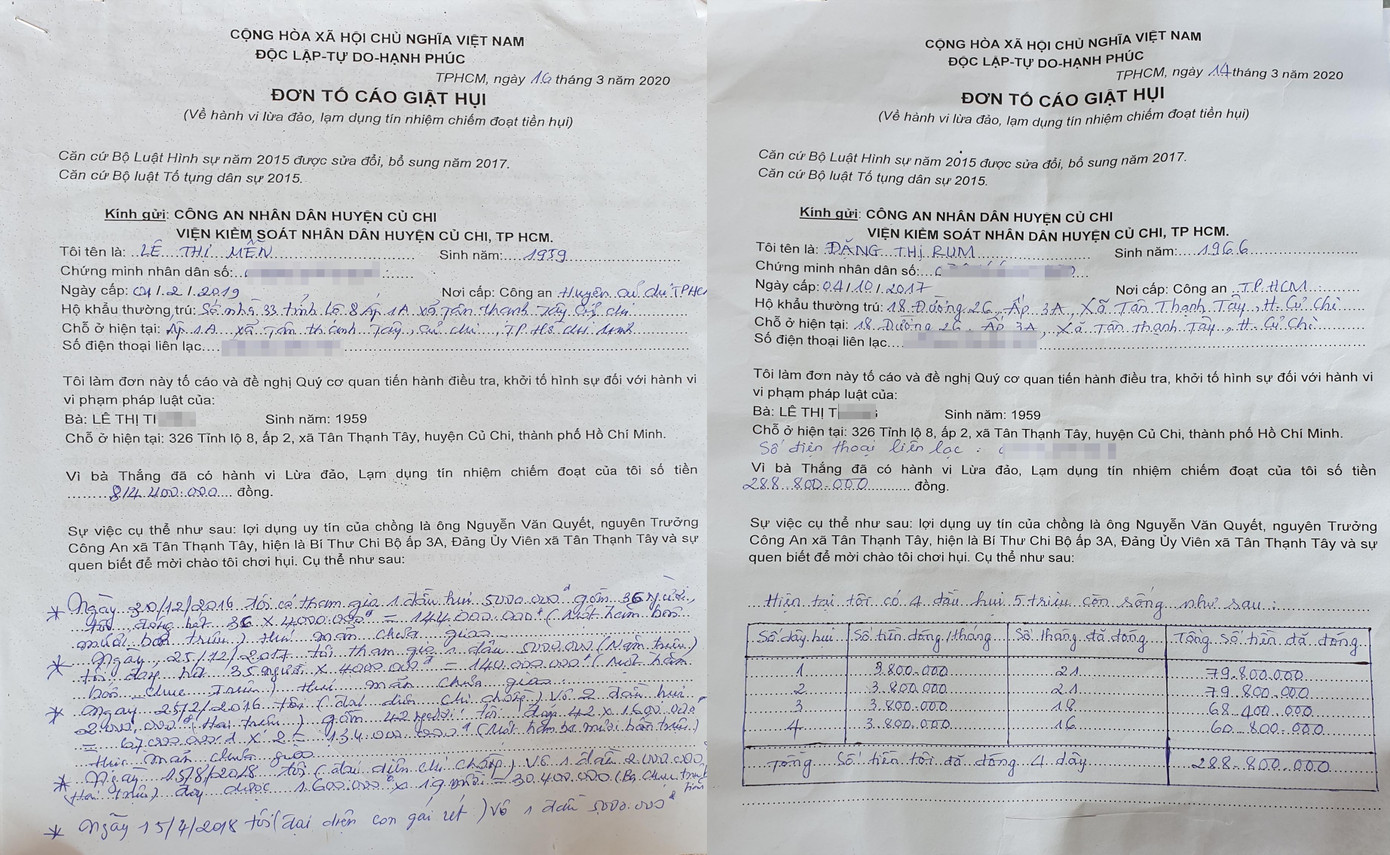 CỘNG HÒA XÃ HỘI CHỦ NGHĨA VIỆT NAM
ĐỘC LẬP-TỰ DO-HẠNH PHÚC
TPHCM, ngày 16 tháng 3 năm 2020
ĐƠN TỐ CÁO GIẬT HỤI
(Về hành vi lừa đảo, lạm dụng tín nhiệm chiếm đoạt tiền hụi)
Căn cứ Bộ Luật Hình sự năm 2015 được sửa đổi, bổ sung năm 2017.
Căn cứ Bộ luật Tố tụng dân sự 2015.
Kính gửi: CÔNG AN NHÂN DÂN HUYỆN CỦ CHI
VIỆN KIỂM SOÁT NHÂN DÂN HUYỆN CỦ CHI, TP HCM.
Tôi tên là: LÊ THỊ MẾN Sinh năm: 1959
Chứng minh nhân dân số:
Ngày cấp: 04/2/2019 Nơi cấp: Công an Huyện củ chi TPHCM
Hộ khẩu thường trú: Số nhà 33 tỉnh lộ 8 Ấp 1A xã Tân Thạnh Tây Củ chi
Chỗ ở hiện tại: Ấp 1A xã Tân thạnh Tây, củ chi, TP Hồ chí Minh
Số điện thoại liên lạc
Tôi làm đơn này tố cáo và đề nghị Quý cơ quan tiến hành điều tra, khởi tố hình sự đối với hành vi
vi phạm pháp luật của:
Bà: LÊ THỊ T Sinh năm: 1959
Chỗ ở hiện tại: 326 Tỉnh lộ 8, ấp 2, xã Tân Thạnh Tây, huyện Củ Chi, thành phố Hồ Chí Minh.
Vì bà Thắng đã có hành vi Lừa đảo, Lạm dụng tín nhiệm chiếm đoạt của tôi số tiền
814.400.000 đồng.
Sự việc cụ thể như sau: lợi dụng uy tín của chồng là ông Nguyễn Văn Quyết, nguyên Trưởng
Công An xã Tân Thạnh Tây, hiện là Bí Thư Chi Bộ ấp 3A, Đảng Ủy Viên xã Tân Thạnh Tây và sự
quen biết để mời chào tôi chơi hụi. Cụ thể như sau:
* Ngày 20/12/2016 tôi có tham gia 1 đầu hụi 5000.000đ gồm 36 người,
tôi đóng hết 36 x 4000.000đ = 144.000.000đ (Một trăm bốn
mươi bốn triệu) hụi mãn chưa giao
* Ngày 25/12/2017 tôi tham gia 1 đầu 5000.000 (Năm triệu)
tôi đóng 35 người x 4000.000đ = 140.000.000đ (Một trăm
bốn chục triệu) hụi mãn chưa giao
* Ngày 25/2/2016 tôi (đại diện chị chồng) Vô 2 đầu hụi
2.000.000đ (Hai triệu) gồm 42 người tôi đóng 42 x 1600.000
= 67.000.000đ x 2 = 134.000.000đ (Một trăm ba mươi bốn triệu)
hụi mãn chưa giao
* Ngày 15/8/2018 tôi (đại diện chị chồng) Vô 1 đầu 2.000.000
Hai triệu) đóng được 1.600.000đ x 19 = 30.400.000 (Ba chục
* Ngày 15/4/2018 tôi (đại diện con gái út) Vô 1 đầu 5000.000đ
CỘNG HÒA XÃ HỘI CHỦ NGHĨA VIỆT NAM
ĐỘC LẬP-TỰ DO-HẠNH PHÚC
TPHCM, ngày 14 tháng 3 năm 2020
ĐƠN TỐ CÁO GIẬT HỤI
(Về hành vi lừa đảo, lạm dụng tín nhiệm chiếm đoạt tiền hụi)
Căn cứ Bộ Luật Hình sự năm 2015 được sửa đổi, bổ sung năm 2017.
Căn cứ Bộ luật Tố tụng dân sự 2015.
Kính gửi: CÔNG AN NHÂN DÂN HUYỆN CỦ CHI
VIỆN KIỂM SOÁT NHÂN DÂN HUYỆN CỦ CHI, TP HCM.
Tôi tên là: ĐẶNG THỊ RUM Sinh năm: 1966
Chứng minh nhân dân số:
Ngày cấp: 04/10/2017 Nơi cấp: Công an TP.HCM
Hộ khẩu thường trú: 18 Đường 26, Ấp 3A, Xã Tân Thạnh Tây, H. Củ Chi
Chỗ ở hiện tại: 18 Đường 26 Ấp 3A, Xã Tân Thạnh Tây, H. Củ Chi
Số điện thoại liên lạc
Tôi làm đơn này tố cáo và đề nghị Quý cơ quan tiến hành điều tra, khởi tố hình sự đối với hành vi
vi phạm pháp luật của:
Bà: LÊ THỊ T Sinh năm: 1959
Chỗ ở hiện tại: 326 Tỉnh lộ 8, ấp 2, xã Tân Thạnh Tây, huyện Củ Chi, thành phố Hồ Chí Minh.
Số điện thoại liên lạc :
Vì bà Thắng đã có hành vi Lừa đảo, Lạm dụng tín nhiệm chiếm đoạt của tôi số tiền
288.800.000 đồng.
Sự việc cụ thể như sau: lợi dụng uy tín của chồng là ông Nguyễn Văn Quyết, nguyên Trưởng
Công An xã Tân Thạnh Tây, hiện là Bí Thư Chi Bộ ấp 3A, Đảng Ủy Viên xã Tân Thạnh Tây và sự
quen biết để mời chào tôi chơi hụi. Cụ thể như sau:
Hiện tại tôi có 4 đầu hụi 5 triệu còn sống như sau:
Số dây hụi Số tiền đóng/tháng Số tháng đã đóng Tổng số tiền đã đóng
1 3.800.000 21 79.800.000
2 3.800.000 21 79.800.000
3 3.800.000 18 68.400.000
4 3.800.000 16 60.800.000
Tổng số tiền tôi đã đóng 4 dây 288.800.000